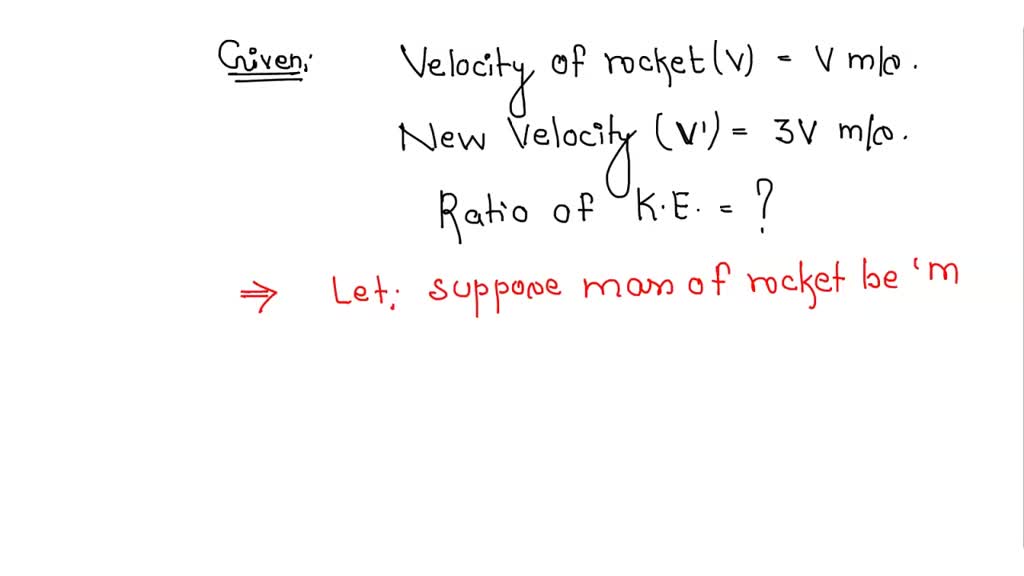 Given: Velocity of rocket (v) = V m/s.
New Velocity (V') = 3V m/s.
Ratio of K.E. = ?
⇒ Let: suppose mass of rocket be 'm